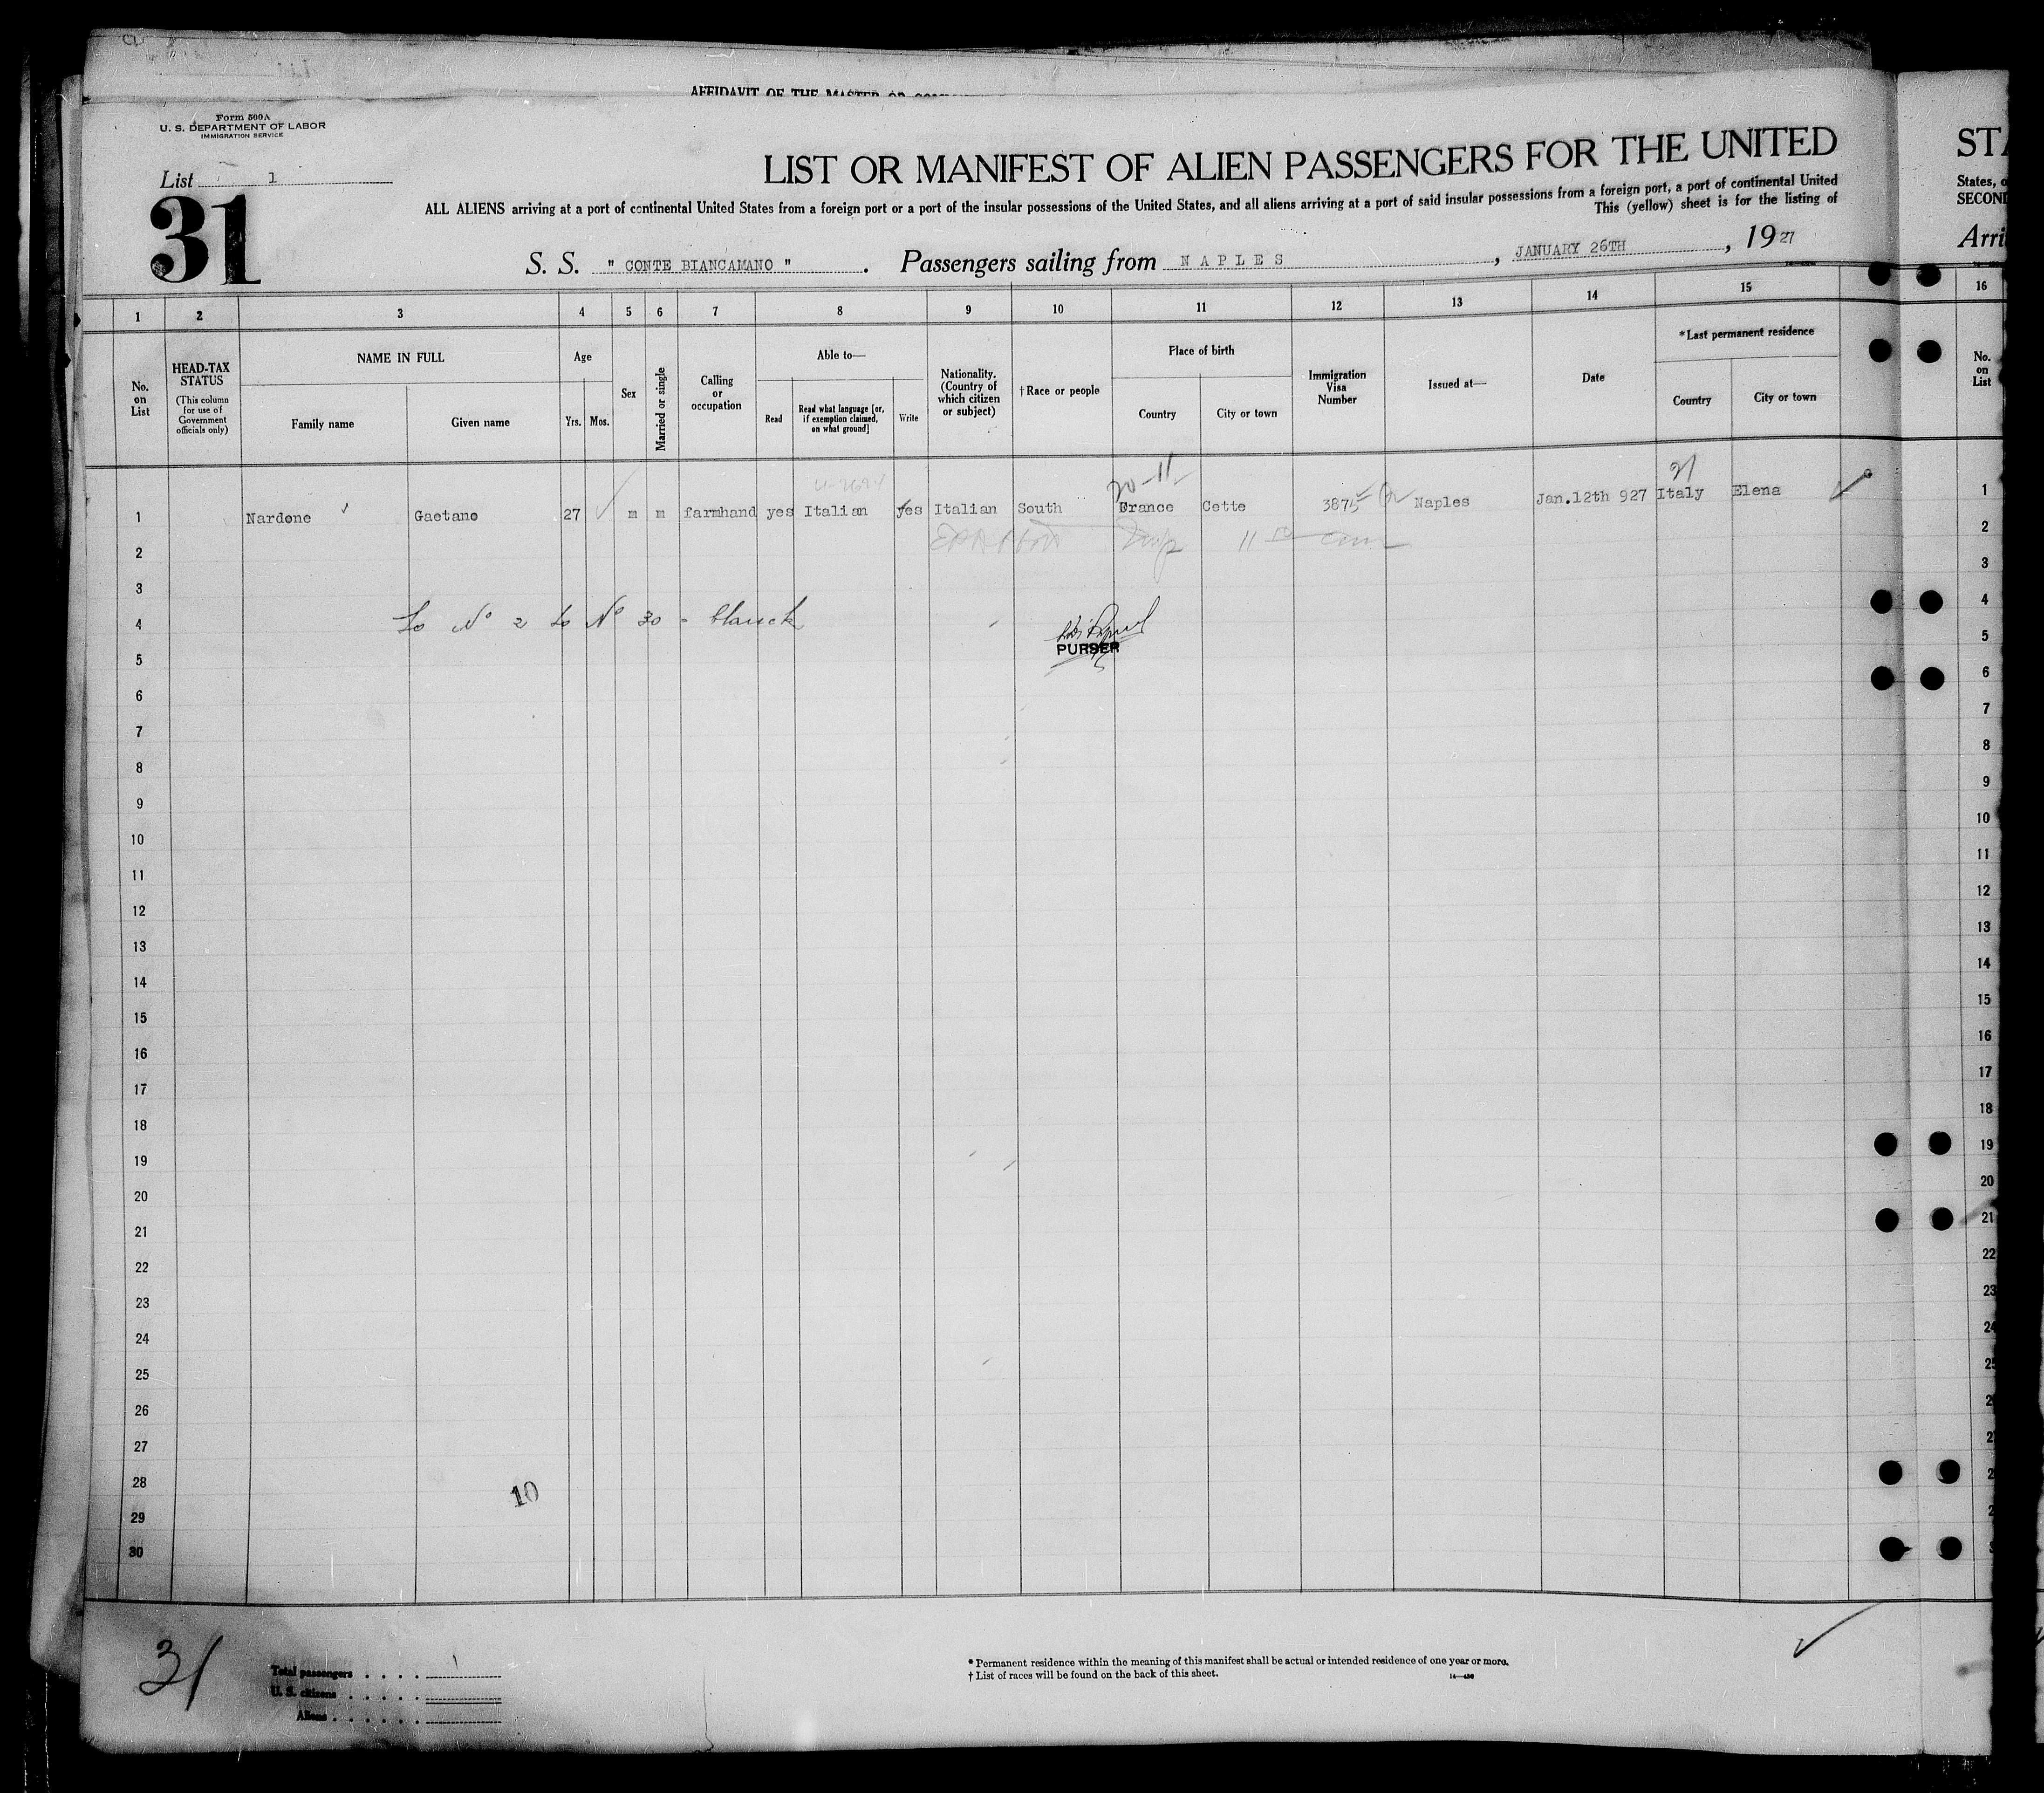 AFFIDAVIT OF THE MASTER OR
Form 500A
U. S. DEPARTMENT OF LABOR
IMMIGRATION SERVICE
List 1
31
LIST OR MANIFEST OF ALIEN PASSENGERS FOR THE UNITED
ALL ALIENS arriving at a port of continental United States from a foreign port or a port of the insular possessions of the United States, and all aliens arriving at a port of said insular possessions from a foreign port, a port of continental United
This (yellow) sheet is for the listing of
S. S. " CONTE BIANCAMANO " . Passengers sailing from NAPLES , JANUARY 26TH , 1927
STA
States, o
SECOND
Arri
1 2 3 4 5 6 7 8 9 10 11 12 13 14 15 16
No. on List
HEAD-TAX STATUS
(This column for use of Government officials only)
NAME IN FULL
Family name Given name
Age
Yrs. Mos.
Sex
Married or single
Calling or occupation
Able to—
Read
Read what language [or, if exemption claimed, on what ground]
Write
Nationality. (Country of which citizen or subject)
†Race or people
Place of birth
Country City or town
Immigration Visa Number
Issued at—
Date
*Last permanent residence
Country City or town
No. on List
20-11
1 Nardone Gaetano 27 m m farmhand yes Italian yes Italian South France Cette 3875 Naples Jan.12th 927 Italy Elena 1
2 2
3 3
To Nº 2 to Nº 30 - blanck
4 4
PURSER
5 5
6 6
7 7
8 8
9 9
10 10
11 11
12 12
13 13
14 14
15 15
16 16
17 17
18 18
19 19
20 20
21 21
22 22
23 23
24 24
25 25
26 2
27 2
28 2
10
29 2
30 3
31
Total passengers . . . . 1
U. S. citizens . . . . .
Aliens . . . . . .
* Permanent residence within the meaning of this manifest shall be actual or intended residence of one year or more.
† List of races will be found on the back of this sheet.